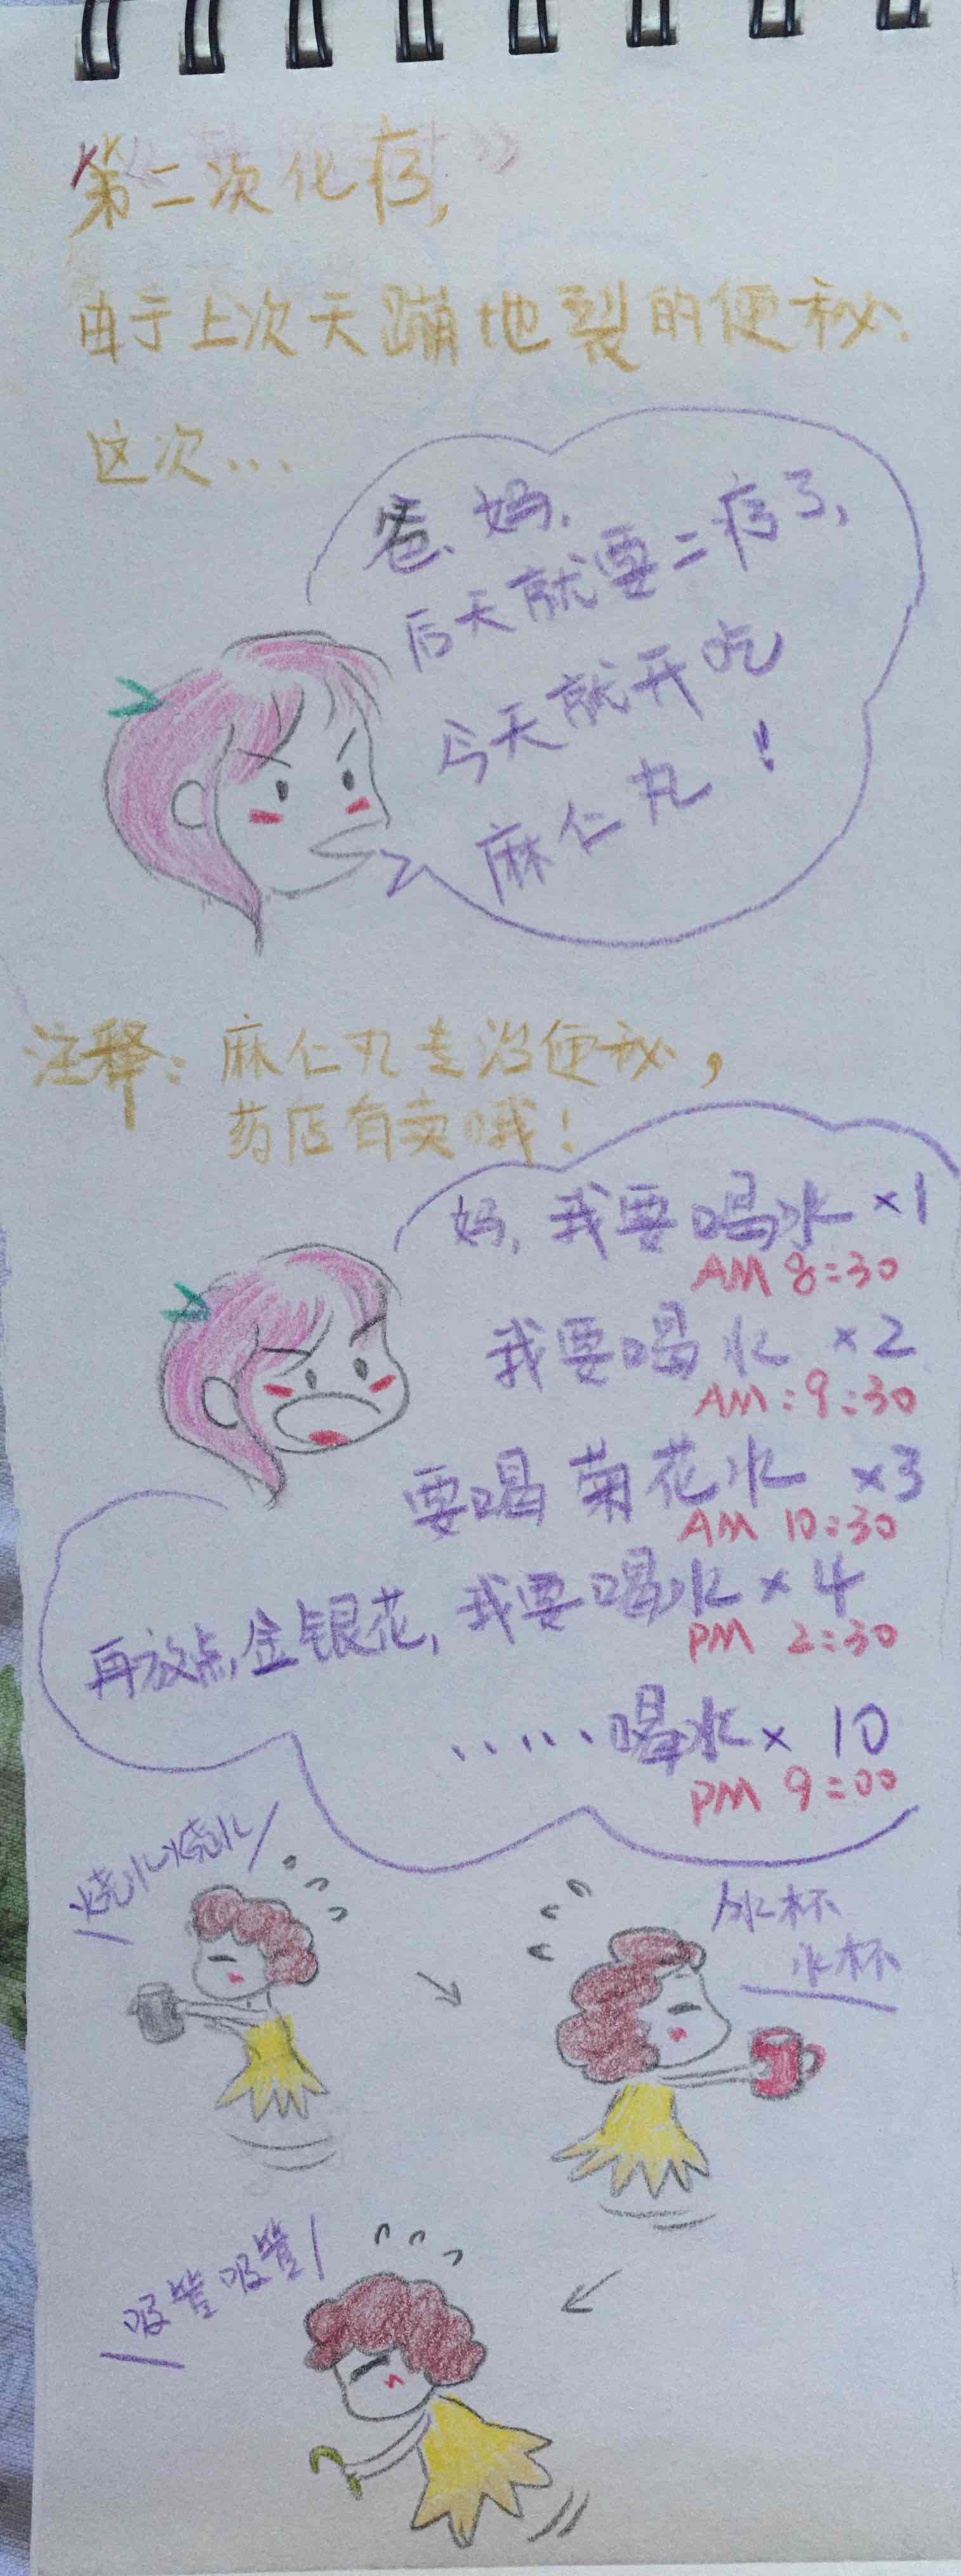 第二次化疗,
由于上次天蹦地裂的便秘,
这次...
爸、妈,
后天就要二疗了,
今天就开吃
麻仁丸!
注释:麻仁丸专治便秘,
药店有卖哦!
妈,我要喝水 ×1
AM 8:30
我要喝水 ×2
AM:9:30
要喝菊花水 ×3
AM 10:30
再放点金银花,我要喝水×4
PM 2:30
......喝水× 10
PM 9:00
烧水烧水
水杯
水杯
吸管吸管